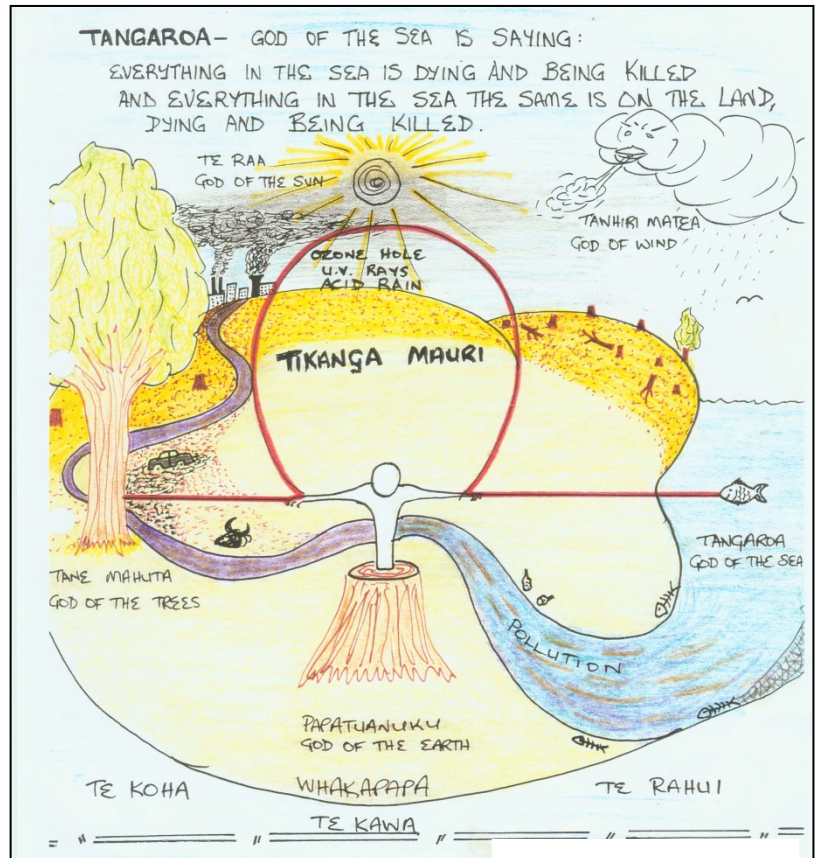 TANGAROA – GOD OF THE SEA IS SAYING:
EVERYTHING IN THE SEA IS DYING AND BEING KILLED
AND EVERYTHING IN THE SEA THE SAME IS ON THE LAND,
DYING AND BEING KILLED.
TE RAA
GOD OF THE SUN
TANHIRI MATEA
GOD OF WIND
OZONE HOLE
U.V. RAYS
ACID RAIN
TIKANGA MAURI
TANGAROA
GOD OF THE SEA
TANE MAHUTA
GOD OF THE TREES
POLLUTION
PAPATUANUKU
GOD OF THE EARTH
TE KOHA
WHAKAPAPA
TE RAHUI
TE KAWA